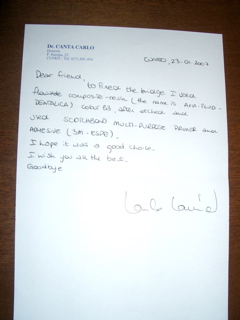 Dr. CANTA CARLO
Dentista
CUNEO
Cuneo, 23-01-2007
Dear friend,
to fixed the bridge I used
flowable composite-resin (the name is
DENTALICA) color B3, after etched and
used SCOTCHBOND MULTI-PURPOSE PRIMER and
ADHESIVE (3M-ESPE).
I hope it was a good choice.
I wish you all the best.
Goodbye
Carlo Canta